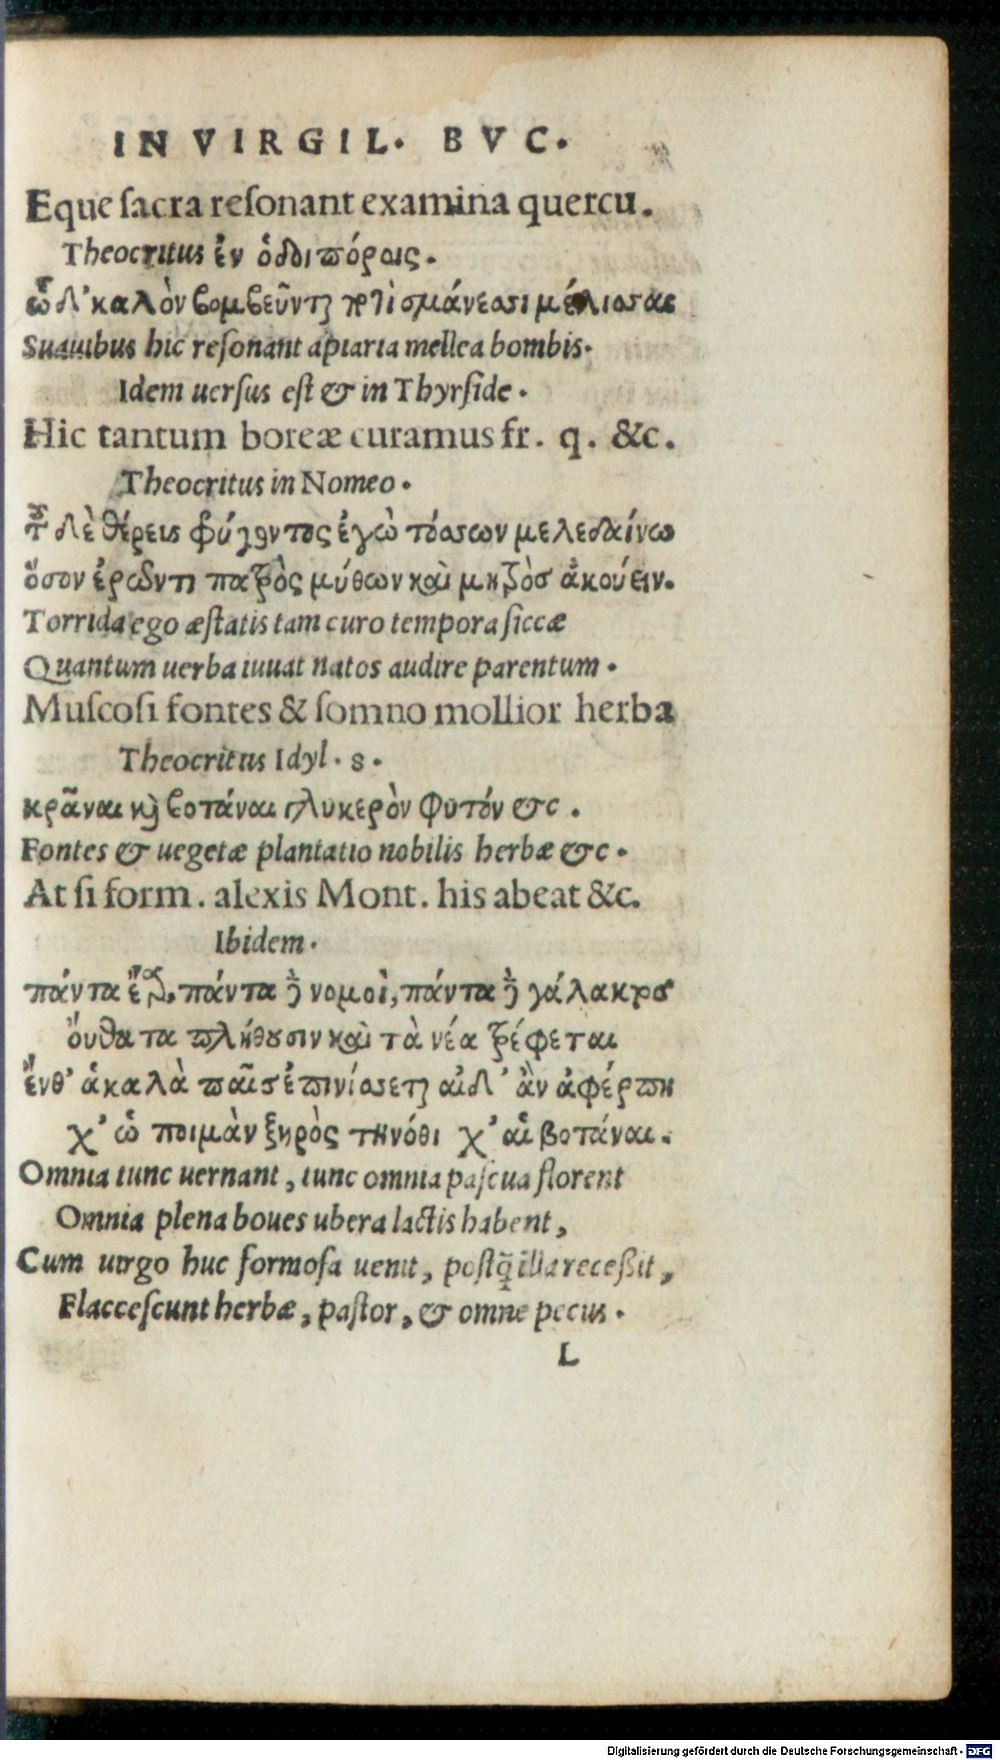 IN VIRGIL. BVC.
Eque ſacra reſonant examina quercu.
Theocritus ἐν ὁδοιπόροις.
ὧδ' καλὸν βομβεῦντι ποτὶ σμάνεσσι μέλισσαι
Suauibus hic reſonant apiaria mellea bombis.
Idem uerſus eſt & in Thyrſide.
Hic tantum boreæ curamus fr. q. &c.
Theocritus in Nomeo.
δὲ θέρευς φύγοντος ἐγὼ τόσσων μελεδαίνω
ὅσον ἐρῶντι πατρὸς μύθων καὶ μητρὸσ ἀκούειν.
Torrida ego æſtatis tam curo tempora ſiccæ
Quantum uerba iuuat natos audire parentum.
Muſcoſi fontes & ſomno mollior herba
Theocritus Idyl. 8.
κρᾶναι καὶ βοτάναι γλυκερὸν φυτόν &c.
Fontes & uegetæ plantatio nobilis herbæ &c.
At ſi form. alexis Mont. his abeat &c.
Ibidem.
πάντα ἔαρ, πάντα δὲ νομοὶ, πάντα δὲ γάλακτος
ὄυθατα πλήθουσιν καὶ τὰ νέα τρέφεται
ἔνθ' ἁ καλὰ παῖς ἐπινίσσεται αἰ δ' ἂν ἀφέρπη
χ' ὡ ποιμὰν ξηρὸς τηνόθι χ' αἱ βοτάναι.
Omnia tunc uernant, tunc omnia paſcua florent
Omnia plena boues ubera lactis habent,
Cum uirgo huc formoſa uenit, poſtq̃ illa receßit,
Flacceſcunt herbæ, paſtor, & omne pecus.
L
Digitalisierung gefördert durch die Deutsche Forschungsgemeinschaft - DFG